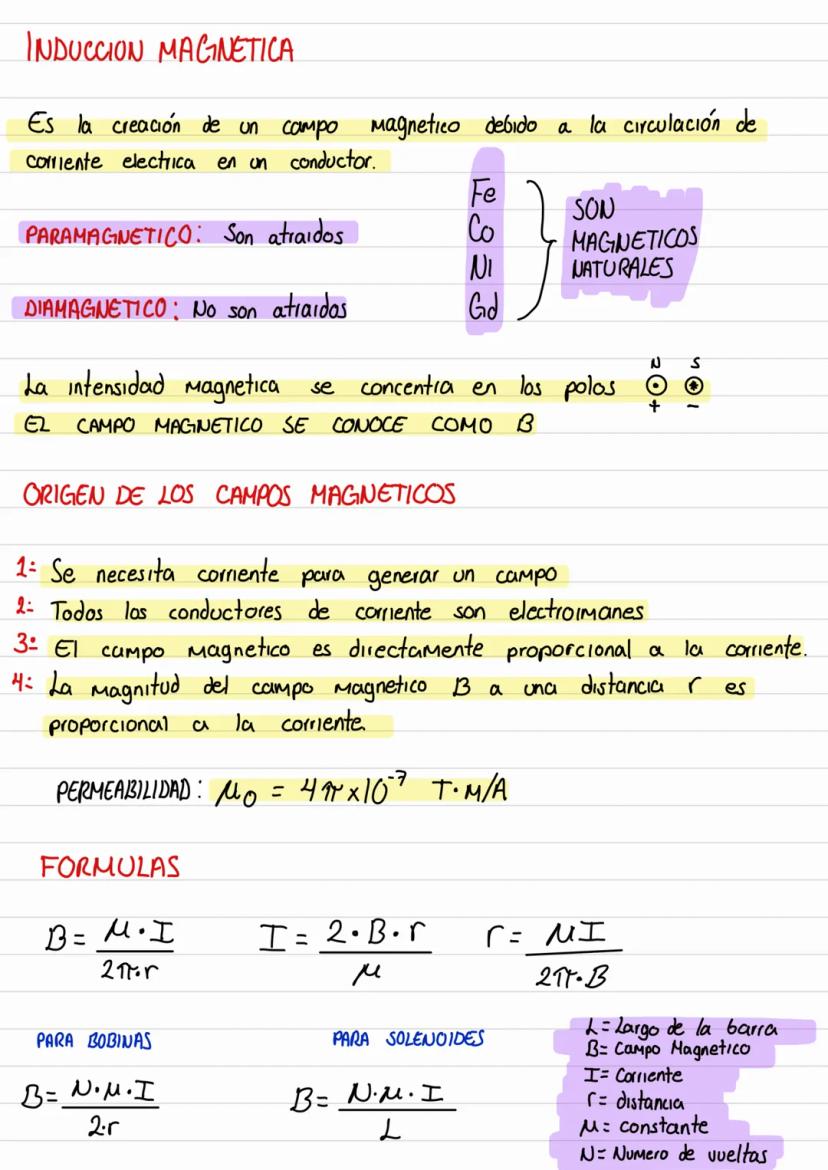 INDUCCION MAGNETICA
Es la creación de un campo magnetico debido a la circulación de
corriente electrica en un conductor.
PARAMAGNETICO: Son atraidos
DIAMAGNETICO: No son atraidos
Fe
Co
Ni
Gd
SON
MAGNETICOS
NATURALES
La intensidad magnetica se concentra en los polos
N S
+ -
EL CAMPO MAGNETICO SE CONOCE COMO B
ORIGEN DE LOS CAMPOS MAGNETICOS
1- Se necesita corriente para generar un campo
2- Todos los conductores de corriente son electroimanes
3- El campo magnetico es directamente proporcional a la corriente.
4- La magnitud del campo magnetico B a una distancia r es
proporcional a la corriente
PERMEABILIDAD: μ₀ = 4π×10⁻⁷ T·M/A
FORMULAS
B = μ·I / 2π·r
I = 2·B·r / μ
r = μI / 2π·B
PARA BOBINAS
B = N·μ·I / 2·r
PARA SOLENOIDES
B = N·μ·I / L
L = Largo de la barra
B = Campo Magnetico
I = Corriente
r = distancia
μ = constante
N = Numero de vueltas